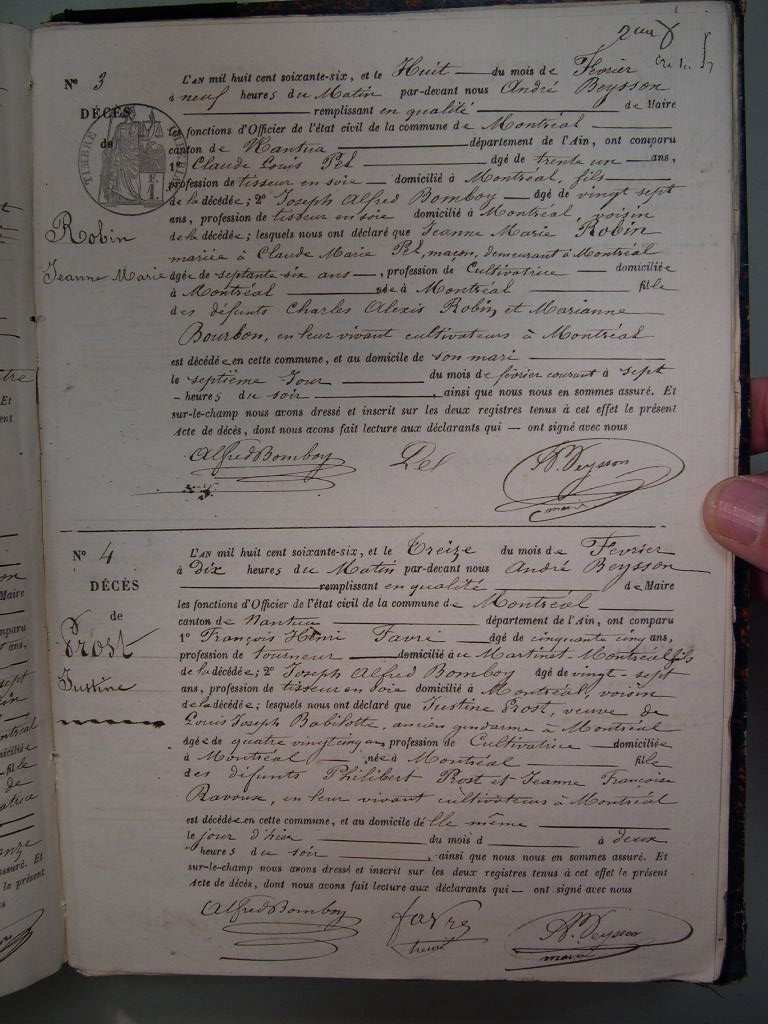 N° 3
DÉCÈS
de
Robin
Jeanne Marie
L'AN mil huit cent soixante-six, et le Huit du mois de Février
à neuf heures du Matin par-devant nous André Beysson
remplissant en qualité de Maire
les fonctions d'Officier de l'état civil de la commune de Montréal
canton de Nantua département de l'Ain, ont comparu
1° Claude Louis âgé de trente un ans,
profession de tisseur en soie domicilié à Montréal, fils
de la décédée; 2° Joseph Alfred Bomboy âgé de vingt sept
ans, profession de tisseur en soie domicilié à Montréal, voisin
de la décédée; lesquels nous ont déclaré que Jeanne Marie Robin
mariée à Claude Marie maçon, demeurant à Montréal
âgée de septante six ans, profession de Cultivatrice domiciliée
à Montréal née à Montréal fille
des défunts Charles Alexis Robin, et Marianne
Bourbon, en leur vivant cultivateurs à Montréal
est décédée en cette commune, et au domicile de son mari
le septième Jour du mois de février courant à sept
heures du soir, ainsi que nous nous en sommes assuré. Et
sur-le-champ nous avons dressé et inscrit sur les deux registres tenus à cet effet le présent
Acte de décès, dont nous avons fait lecture aux déclarants qui — ont signé avec nous
Alfred Bomboy
maire
N° 4
DÉCÈS
de
Prost
Justine
L'AN mil huit cent soixante-six, et le Treize du mois de Février
à Dix heures du Matin par-devant nous André Beysson
remplissant en qualité de Maire
les fonctions d'Officier de l'état civil de la commune de Montréal
canton de Nantua département de l'Ain, ont comparu
1° François Henri Favre âgé de cinquante cinq ans,
profession de tourneur domicilié au Martinet Montréal fils
de la décédée; 2° Joseph Alfred Bomboy âgé de vingt-sept
ans, profession de tisseur en soie domicilié à Montréal, voisin
de la décédée; lesquels nous ont déclaré que Justine Prost, veuve de
Louis Joseph ancien gendarme à Montréal
âgée de quatre vingt cinq ans profession de Cultivatrice domiciliée
à Montréal née à Montréal fille
des défunts Philibert Prost et Jeanne Françoise
Ravoux, en leur vivant cultivateurs à Montréal
est décédée en cette commune, et au domicile d'elle même
le jour d'hier du mois d à deux
heures du soir, ainsi que nous nous en sommes assuré. Et
sur-le-champ nous avons dressé et inscrit sur les deux registres tenus à cet effet le présent
Acte de décès, dont nous avons fait lecture aux déclarants qui — ont signé avec nous
Alfred Bomboy favre
maire